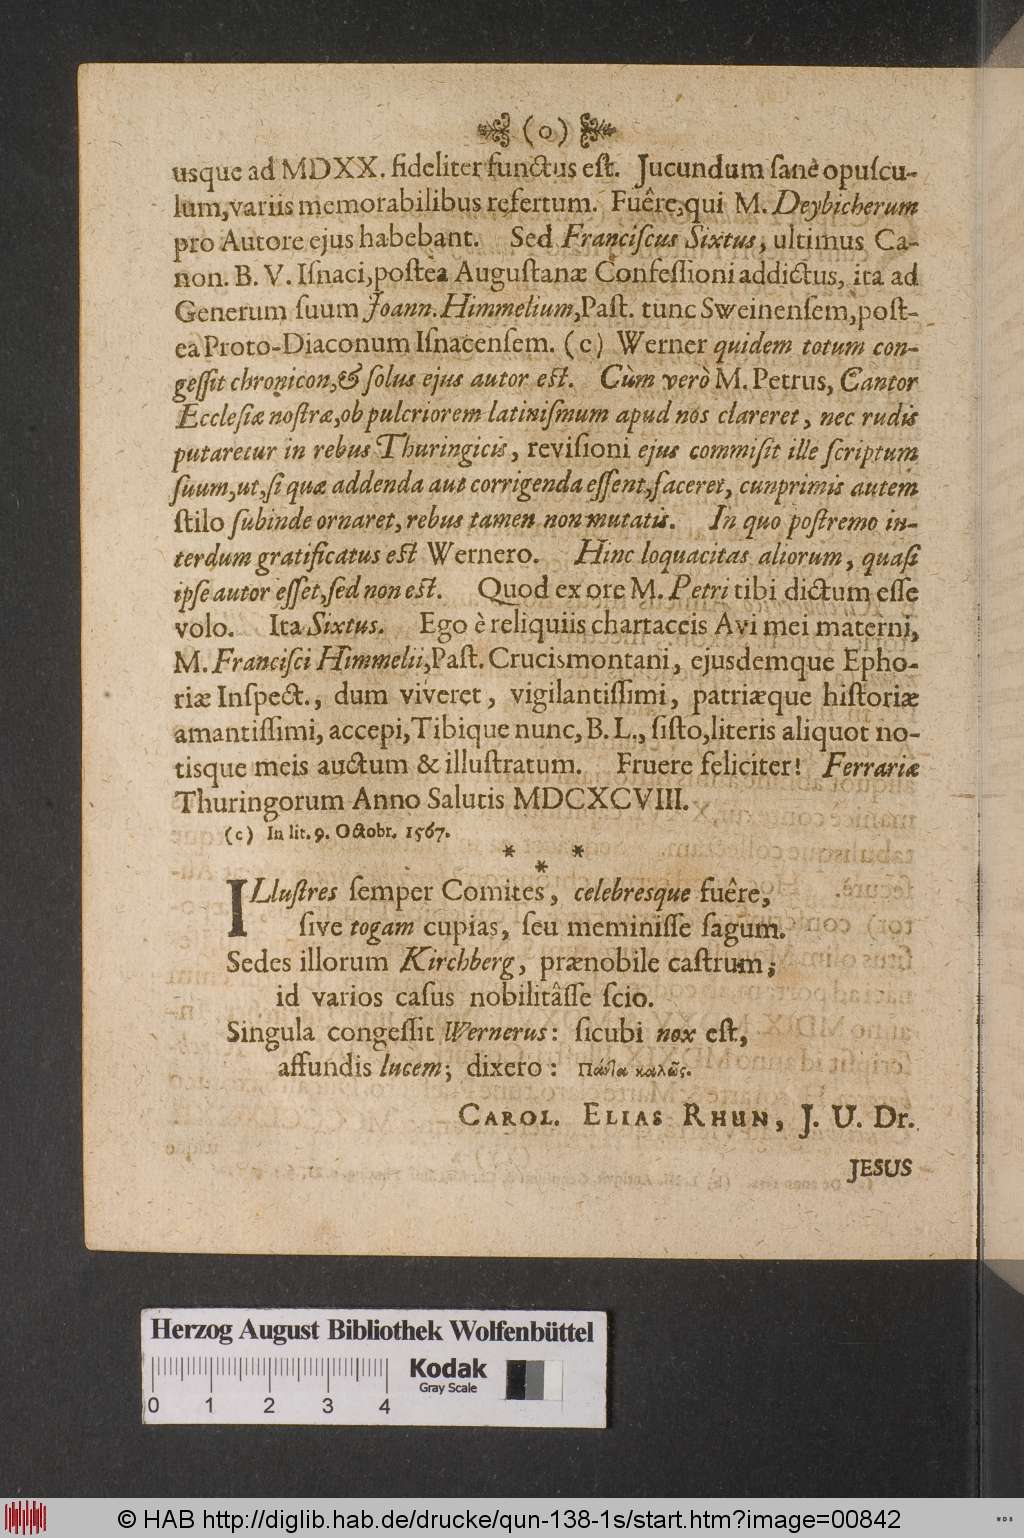 (o)
usque ad MDXX. fideliter functus eſt. Jucundum ſanè opuſcu-
lum, variis memorabilibus refertum. Fuêre, qui M. Deybicherum
pro Autore ejus habebant. Sed Franciſcus Sixtus, ultimus Ca-
non. B. V. Iſnaci, poſtea Auguſtanæ Confeſſioni addictus, ita ad
Generum ſuum Joann. Himmelium, Paſt. tunc Sweinenſem, poſt-
ea Proto-Diaconum Iſnacenſem. (c) Werner quidem totum con-
geſſit chronicon, & ſolus ejus autor eſt. Cùm verò M. Petrus, Cantor
Eccleſiæ noſtræ, ob pulcriorem latiniſmum apud nos clareret, nec rudis
putaretur in rebus Thuringicis, reviſioni ejus commiſit ille ſcriptum
ſuum, ut, ſi quæ addenda aut corrigenda eſſent, faceret, cunprimis autem
ſtilo ſubinde ornaret, rebus tamen non mutatis. In quo poſtremo in-
terdum gratificatus eſt Wernero. Hinc loquacitas aliorum, quaſi
ipſe autor eſſet, ſed non eſt. Quod ex ore M. Petri tibi dictum eſſe
volo. Ita Sixtus. Ego è reliquiis chartaceis Avi mei materni,
M. Franciſci Himmelii, Paſt. Crucismontani, ejusdemque Epho-
riæ Inſpect., dum viveret, vigilantiſſimi, patriæque hiſtoriæ
amantiſſimi, accepi, Tibique nunc, B. L., ſiſto, literis aliquot no-
tisque meis auctum & illuſtratum. Fruere feliciter! Ferrariæ
Thuringorum Anno Salutis MDCXCVIII.
(c) In lit. 9. Octobr. 1567.
* * *
ILluſtres ſemper Comites, celebresque fuêre,
ſive togam cupias, ſeu meminiſſe ſagum.
Sedes illorum Kirchberg, prænobile caſtrum;
id varios caſus nobilitâſſe ſcio.
Singula congeſſit Wernerus: ſicubi nox eſt,
affundis lucem; dixero: Πάντα καλῶς.
CAROL. ELIAS RHUN, J. U. Dr.
JESUS
Herzog August Bibliothek Wolfenbüttel
Kodak
Gray Scale
0 1 2 3 4
© HAB http://diglib.hab.de/drucke/qun-138-1s/start.htm?image=00842